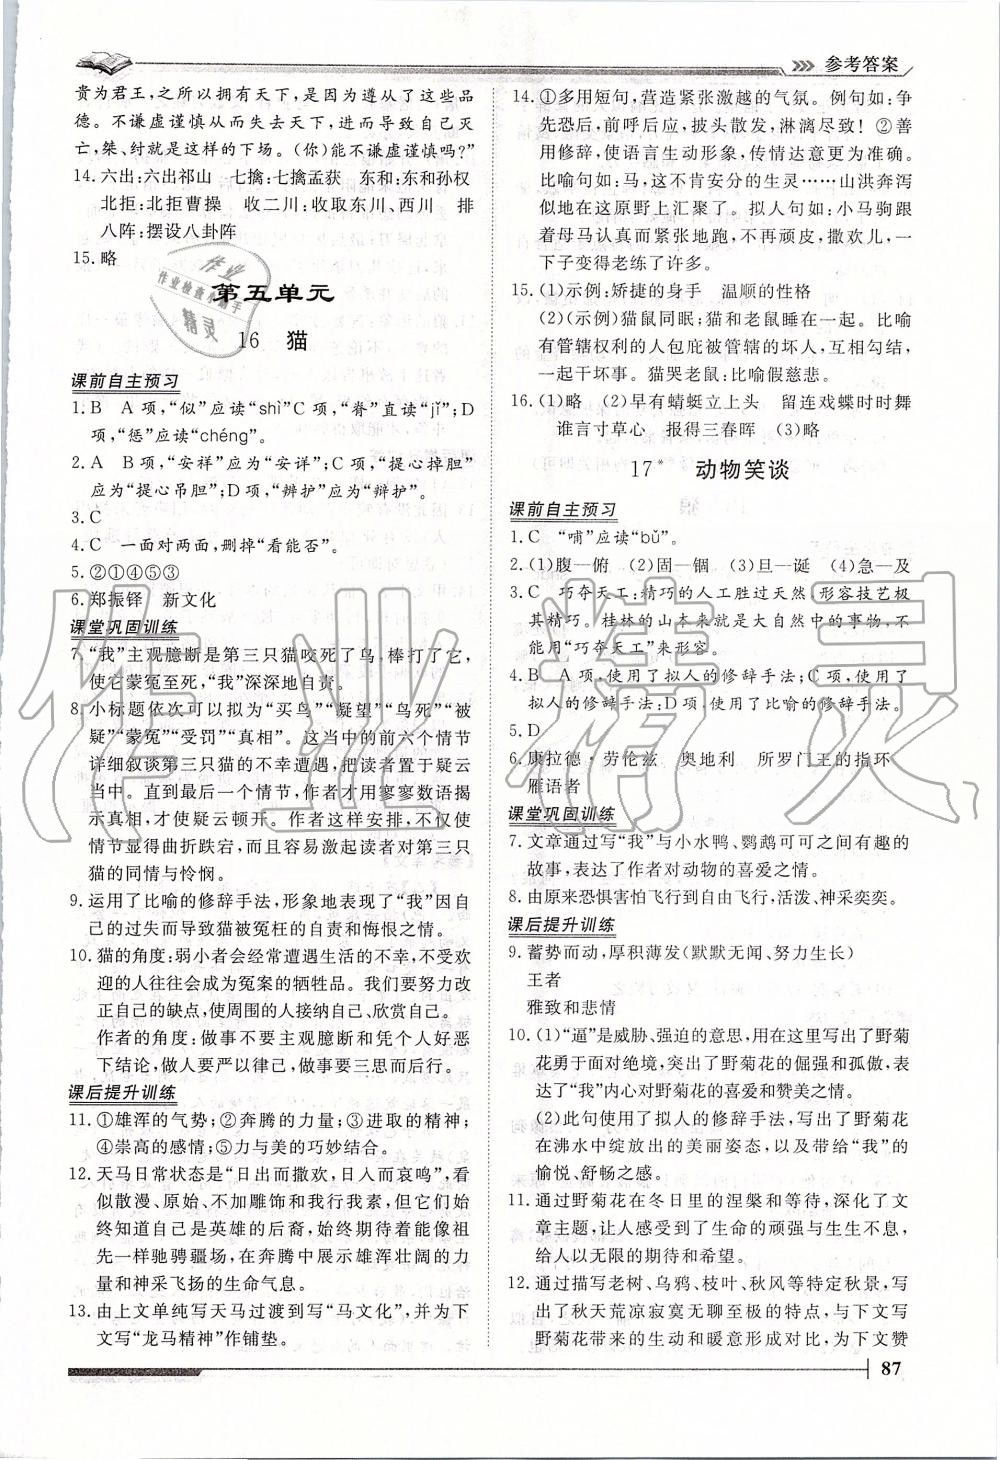 参考答案
贵为君王,之所以拥有天下,是因为遵从了这些品
德。不谦虚谨慎从而失去天下,进而导致自己灭
亡,桀、纣就是这样的下场。(你)能不谦虚谨慎吗?”
14.六出:六出祁山 七擒:七擒孟获 东和:东和孙权
北拒:北拒曹操 收二川:收取东川、西川 排
八阵:摆设八卦阵
15.略
第五单元
16 猫
课前自主预习
1.B A项,“似”应读“shì”C项,“脊”直读“jǐ”;D
项,“惩”应读“chéng”。
2.A B项,“安祥”应为“安详”;C项,“提心掉胆”
应为“提心吊胆”;D项,“辨护”应为“辩护”。
3.C
4.C 一面对两面,删掉“看能否”。
5.②①④⑤③
6.郑振铎 新文化
课堂巩固训练
7.“我”主观臆断是第三只猫咬死了鸟,棒打了它,
使它蒙冤至死,“我”深深地自责。
8.小标题依次可以拟为“买鸟”“凝望”“鸟死”“被
疑”“蒙冤”“受罚”“真相”。这当中的前六个情节
详细叙谈第三只猫的不幸遭遇,把读者置于疑云
当中。直到最后一个情节,作者才用寥寥数语揭
示真相,才使疑云顿开。作者这样安排,不仅使
情节显得曲折跌宕,而且容易激起读者对第三只
猫的同情与怜悯。
9.运用了比喻的修辞手法,形象地表现了“我”因自己
的过失而导致猫被冤枉的自责和悔恨之情。
10.猫的角度:弱小者会经常遭遇生活的不幸,不受欢
迎的人往往会成为冤案的牺牲品。我们要努力改
正自己的缺点,勇敢地接纳自己、欣赏自己。
作者的角度:做事不要主观臆断和凭个人好恶
下结论,做人要严以律己,做事要三思而后行。
课后提升训练
11.①雄浑的气势;②奔腾的力量;③进取的精神;
④崇高的感情;⑤力与美的巧妙结合。
12.天马日常状态是“日出而撒欢,日入而哀鸣”,看
似散漫、原始、不加雕饰和我行我素,但它们始
终知道自己是英雄的后裔,始终期待着能像祖
先一样驰骋疆场,在奔腾中展示雄浑壮阔的力
量和神采飞扬的生命气息。
13.由上文单纯写天马过渡到写“马文化”,并为下
文写“龙马精神”作铺垫。
14.①多用短句,营造紧张激越的气氛。例句如:争
先恐后,前呼后应,披头散发,淋漓尽致!②善
用修辞,使语言生动形象,传情达意更为准确。
比喻句如:马,这不肯安分的生灵……山洪奔泻
似地在这原野上汇聚了。拟人句如:小马驹跟
着母马认真而紧张地跑,不再顽皮,撒欢儿,一
下子变得老练了许多。
15.(1)示例:矫捷的身手 温顺的性格
(2)(示例)猫鼠同眠:猫和老鼠睡在一起。比喻
有管辖权利的人包庇被管辖的坏人,互相勾结,
一起干坏事。猫哭老鼠:比喻假慈悲。
16.(1)略 (2)早有蜻蜓立上头 留连戏蝶时时舞
谁言寸草心 报得三春晖 (3)略
17* 动物笑谈
课前自主预习
1.C “哺”应读“bǔ”。
2.(1)腹—俯 (2)固—锢 (3)旦—诞 (4)急—及
3.C 巧夺天工:精巧的人工胜过天然,形容技艺极
其精巧。桂林的山本来就是大自然中的事物,不
能用“巧夺天工”来形容。
4.B A项,使用了拟人的修辞手法;C项,使用了拟
人的修辞手法;D项,使用了比喻的修辞手法。
5.D
6.康拉德·劳伦兹 奥地利 所罗门王的指环
雁语者
课堂巩固训练
7.文章通过写“我”与小水鸭、鹦鹉可可之间有趣的
故事,表达了作者对动物的喜爱之情。
8.由原来恐惧害怕飞行到自由飞行,活泼、神采奕奕。
课后提升训练
9.蓄势而动,厚积薄发(默默无闻、努力生长)
王者
雅致和悲情
10.(1)“逼”是威胁、强迫的意思,用在这里写出了野菊
花勇于面对绝境,突出了野菊花的倔强和孤傲,表
达了“我”内心对野菊花的喜爱和赞美之情。
(2)此句使用了拟人的修辞手法,写出了野菊花
在沸水中绽放出的美丽姿态,以及带给“我”的
愉悦、舒畅之感。
11.通过野菊花在冬日里的涅槃和等待,深化了文
章主题,让人感受到了生命的顽强与生生不息,
给人以无限的期待和希望。
12.通过描写老树、乌鸦、枝叶、秋风等特定秋景,写
出了秋天荒凉寂寞无聊至极的特点,与下文写
野菊花带来的生动和暖意形成对比,为下文赞
87
作业
作业检查小帮手
精灵
作业精灵